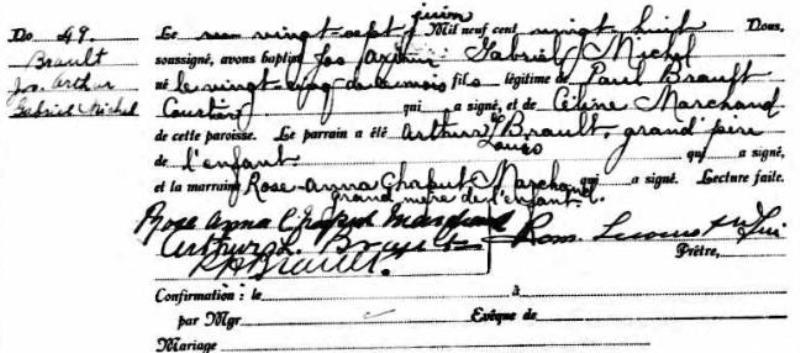 No 49.
Brault
Jos. Arthur
Gabriel Michel
Le vingt-sept juin Mil neuf cent vingt huit Nous,
soussigné, avons baptisé Jos Arthur Gabriel Michel
né le vingt cinq du mois fils légitime de Paul Brault
Courtier qui a signé, et de Céline Marchand
de cette paroisse. Le parrain a été Arthur Louis Brault, grand'père
de l'enfant. qui a signé,
et la marraine Rose-Anna Chaput Marchand qui a signé. Lecture faite.
grand mère de l'enfant.
Rose Anna Chaput Marchand
Arthur L. Brault
Brault.
Prêtre,
Confirmation : le à
par Mgr Evêque de
Mariage